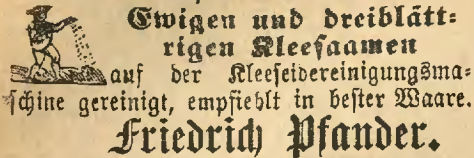 Ewigen und dreiblätt-
rigen Kleesaamen
auf der Kleeseidereinigungsma-
schine gereinigt, empfiehlt in bester Waare.
Friedrich Pfander.